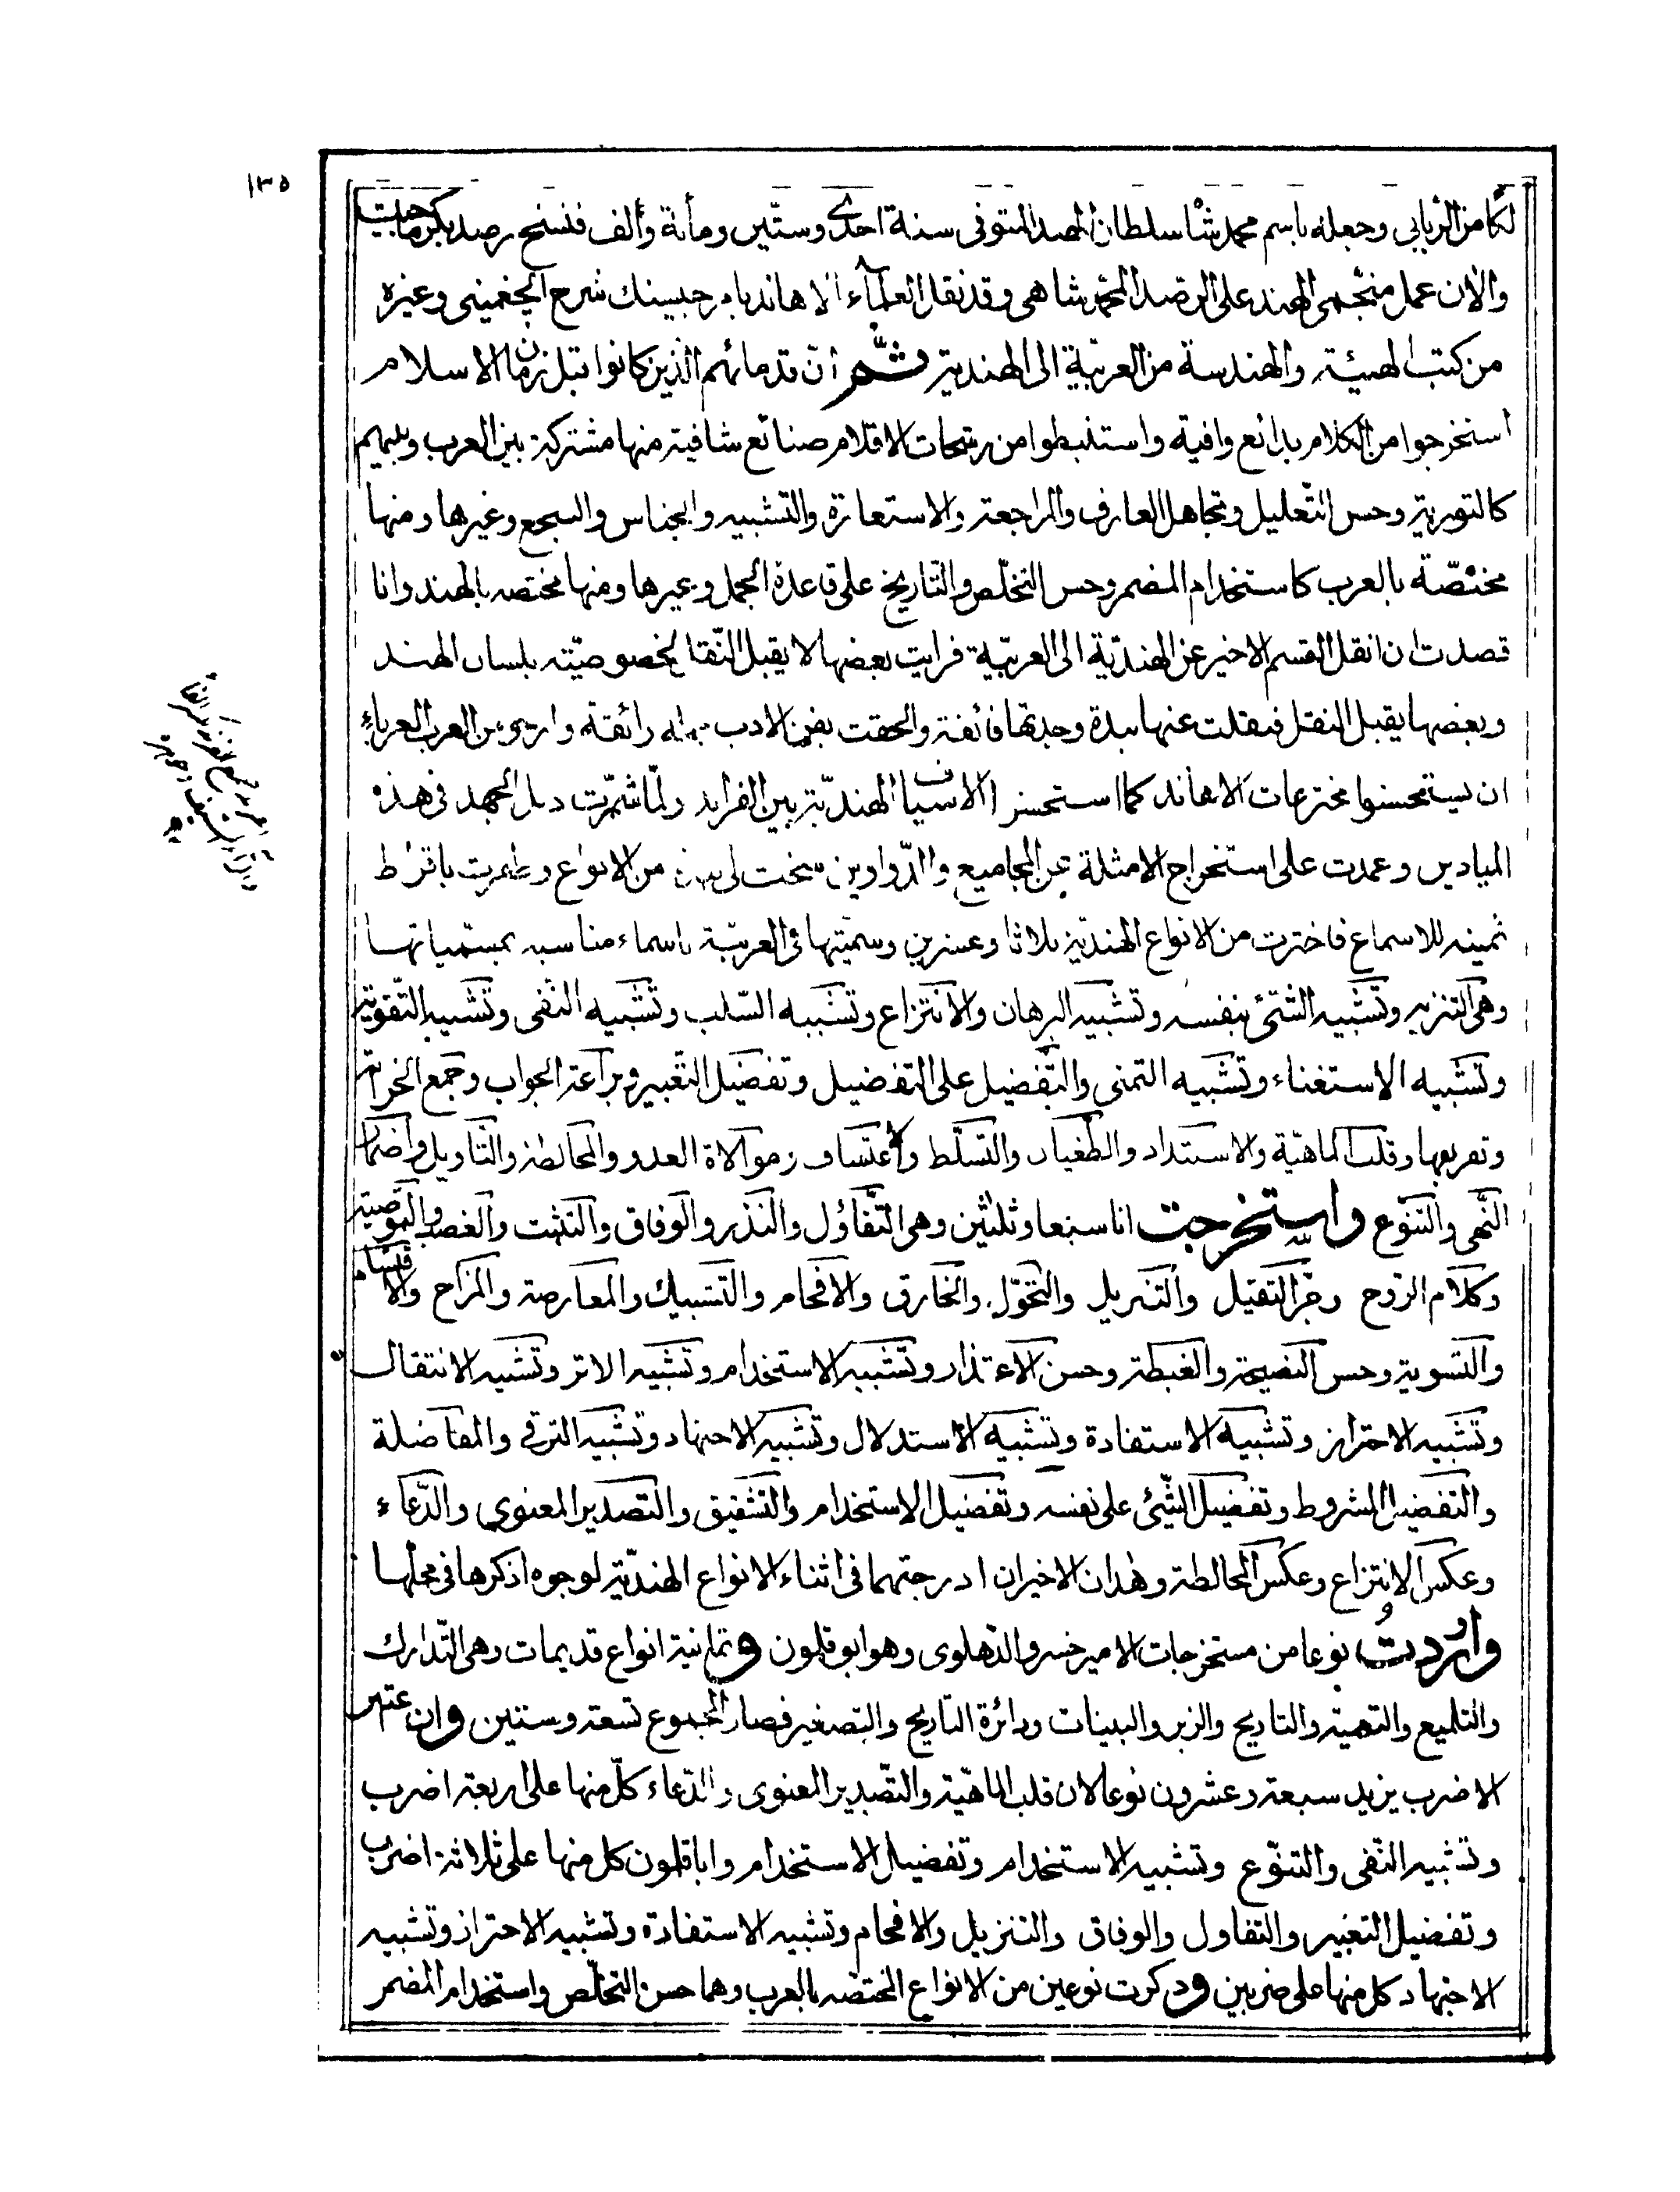 ١٣٥
لكا من الربابي وجعله باسم محمد شاه سلطان الهند المتوفى سنة احدى وستين ومأنة وألف فنسخ رصد بكرماجيت
والان عمل منجمى الهند على الرصد المحمد شاهى وقد نقل العلماء الاهاند بامر جيسنك شرح الچغمينى وغيره
من كتب الهيئة والهندسة من العربية الى الهندية ثم ان قدمائهم الذين كانوا قبل زمان الاسلام
استخرجوا من الكلام بدائع وافية واستنبطوا من رشحات الاقلام صنائع شافية منها مشتركة بين العرب وبينهم
كالتورية وحسن التعليل وتجاهل العارف والمراجعة والاستعارة والتشبيه والجناس والسجع وغيرها ومنها
مختصّة بالعرب كاستخدام المضمر وحسن التخلّص والتّاريخ على قاعدة الجمل وغيرها ومنها مختصه بالهند وانا
قصدت ان انقل القسم الاخير عن الهنديّة الى العربيّة فرايت بعضها لا يقبل النّقل لخصوصيّته بلسان الهند
وبعضها يقبل النقل فنقلت عنها نبذة وجدتها فائقة والحقت بفن الادب جملة رائقة وارجو من العرب العرباء
ان يستحسنوا مخترعات الاهاند كما استحسنوا الاسياف الهنديّة بين الفرايد ولمّا شمّرت ذيل الجهد فى هذه
الميادين وعمدت على استخراج الامثلة عن المجاميع والدّواوين سنحت لى من الانواع وظفرت باقراط
ثمينه للاسماع فاخترت من الانواع الهنديّة ثلاثا وعشرين وسمّيتها فى العربيّة باسماء مناسبه بمسمّياتها
وهى التنزيه وتشبيه الشئ بنفسه وتشبيه البرهان والانتزاع وتشبيه السّلب وتشبيه النّفى وتشبيه التّقوية
وتشبيه الاستغناء وتشبيه التمنى والتفضيل على التفضيل وتفضيل التغيير وبراعة الجواب وجمع الخزانة
وتفريعها وقلب الماهيّة والاستبداد والطّغيان والتّسلّط والاعتساف وموالاة العدو والمخالطة والتّاويل واضمار
النّهى والتّنوّع واستخرجت انا سبعا وثلثين وهى التّفاؤل والنذر والوفاق والتثبت والغصب والتوصية
وكلام الرّوح وجرّ الثقيل والتّنزيل والتحوّل والخارق والافحام والتشبيك والمعارضة والمزاح والاقسام
والتسوية وحسن النصيحة والغبطة وحسن الاعتذار وتشبيه الاستخدام وتشبيه الاثر وتشبيه الانتقال
وتشبيه الاحتراز وتشبيه الاستفادة وتشبيه الاستدلال وتشبيه الاجتهاد وتشبيه الترقى والمفاضلة
والتفضيل المشروط وتفضيل الشّئ على نفسه وتفضيل الاستخدام والتشقيق والتصدير المعنوى والدّعاء
وعكس الانتزاع وعكس المخالطة وهذان الاخيران ادرجتهما فى اثناء الانواع الهنديّة لوجوه اذكرها فى محلّها
واوردت نوعا من مستخرجات الامير خسرو الدّهلوى وهو ابو قلمون وثمانية انواع قديمات وهى التّدارك
والتلميع والتعمية والتاريخ والزبر والبينات ودائرة التاريخ والتصغير فصار المجموع تسعة وستين وان عتبر
الاضرب يزيد سبعة وعشرون نوعا لان قلب الماهيّة والتّصدير المعنوى والدّعاء كلّ منها على اربعة اضرب
وتشبيه النّفى والتنوّع وتشبيه الاستخدام وتفضيل الاستخدام وابا قلمون كل منها على ثلاثة اضرب
وتفضيل التغيير والتفاول والوفاق والتنزيل والافحام وتشبيه الاستفادة وتشبيه الاحتراز وتشبيه
الاجتهاد كل منها على ضربين وذكرت نوعين من الانواع المختصّه بالعرب وهما حسن التخلّص واستخدام المضمر